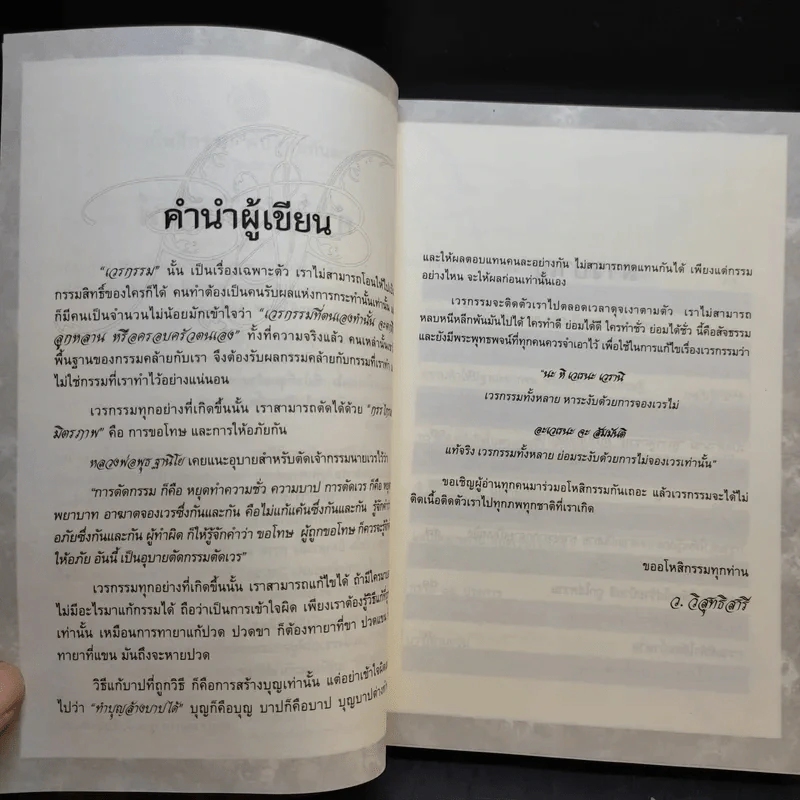 คำนำผู้เขียน
"เวรกรรม" นั้น เป็นเรื่องเฉพาะตัว เราไม่สามารถโอนให้ไปเป็น
กรรมสิทธิ์ของใครก็ได้ คนทำต้องเป็นคนรับผลแห่งการกระทำนั้นเท่านั้น
ก็มีคนเป็นจำนวนไม่น้อยมักเข้าใจว่า "เวรกรรมที่ตนเองทำนั้น
ลูกหลาน หรือครอบครัวตนเอง" ทั้งที่ความจริงแล้ว คนเหล่านั้น
พื้นฐานของกรรมคล้ายกับเรา จึงต้องรับผลกรรมคล้ายกับกรรมที่เราทำ
ไม่ใช่กรรมที่เราทำไว้อย่างแน่นอน
เวรกรรมทุกอย่างที่เกิดขึ้นนั้น เราสามารถตัดได้ด้วย
มิตรภาพ" คือ การขอโทษ และการให้อภัยกัน
หลวงพ่อพุธ ฐานิโย เคยแนะอุบายสำหรับตัดเจ้ากรรมนายเวรไว้ว่า
"การตัดกรรม ก็คือ หยุดทำความชั่ว ความบาป การตัดเวร ก็คือ
พยาบาท อาฆาตจองเวรซึ่งกันและกัน คือไม่แก้แค้นซึ่งกันและกัน
อภัยซึ่งกันและกัน ผู้ทำผิด ก็ให้รู้จักคำว่า ขอโทษ ผู้ถูกขอโทษ ก็ควรจะรู้จัก
ให้อภัย อันนี้ เป็นอุบายตัดกรรมตัดเวร"
เวรกรรมทุกอย่างที่เกิดขึ้นนั้น เราสามารถแก้ไขได้ ถ้ามีใคร
ไม่มีอะไรมาแก้กรรมได้ ถือว่าเป็นการเข้าใจผิด เพียงเราต้องรู้วิธีแก้
เท่านั้น เหมือนการทายาแก้ปวด ปวดขา ก็ต้องทายาที่ขา ปวดแขน
ทายาที่แขน มันถึงจะหายปวด
วิธีแก้บาปที่ถูกวิธี ก็คือการสร้างบุญเท่านั้น แต่อย่าเข้าใจผิด
ไปว่า "ทำบุญล้างบาปได้" บุญก็คือบุญ บาปก็คือบาป บุญบาป
และให้ผลตอบแทนคนละอย่างกัน ไม่สามารถทดแทนกันได้ เพียงแต่กรรม
อย่างไหน จะให้ผลก่อนเท่านั้นเอง
เวรกรรมจะติดตัวเราไปตลอดเวลาดุจเงาตามตัว เราไม่สามารถ
หลบหนีหลีกพ้นมันไปได้ ใครทำดี ย่อมได้ดี ใครทำชั่ว ย่อมได้ชั่ว นี้คือสัจธรรม
และยังมีพระพุทธพจน์ที่ทุกคนควรจำเอาไว้ เพื่อใช้ในการแก้ไขเรื่องเวรกรรมว่า
"นะ หิ เวเรนะ เวรานิ
เวรกรรมทั้งหลาย หาระงับด้วยการจองเวรไม่
อะเวเรนะ จะ สัมมันติ
แท้จริง เวรกรรมทั้งหลาย ย่อมระงับด้วยการไม่จองเวรเท่านั้น"
ขอเชิญผู้อ่านทุกคนมาร่วมอโหสิกรรมกันเถอะ แล้วเวรกรรมจะได้ไม่
ติดเนื้อติดตัวเราไปทุกภพทุกชาติที่เราเกิด
ขออโหสิกรรมทุกท่าน
ว. วิสุทธิสารี